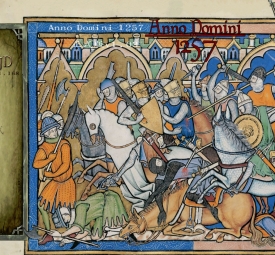 Anno Domini 1257
Anno Domini
1257